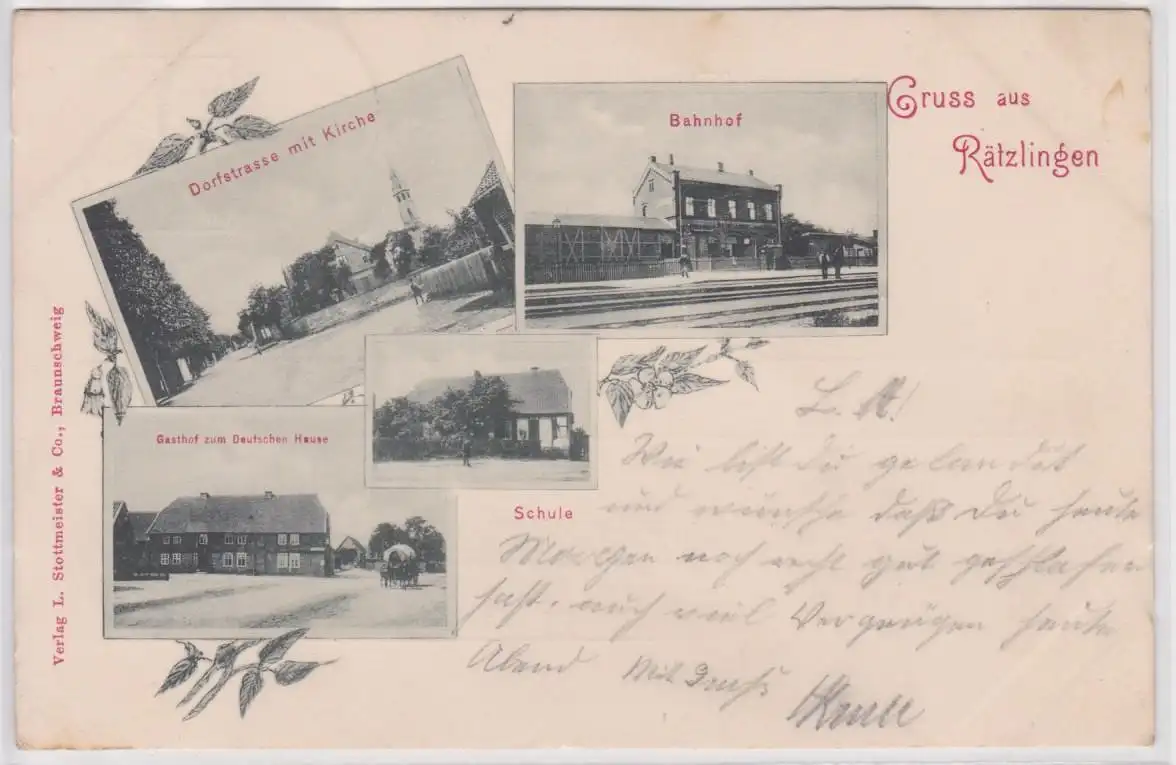 Gruss aus
Rätzlingen
Dorfstrasse mit Kirche
Bahnhof
Gasthof zum Deutschen Hause
Schule
Verlag L. Stottmeister & Co., Braunschweig
L. A!
Wie bist Du gelandet
und wünsche daß Du heute
Morgen noch recht gut geschlafen
hast, auch viel Vergnügen heute
Abend Mit Gruß